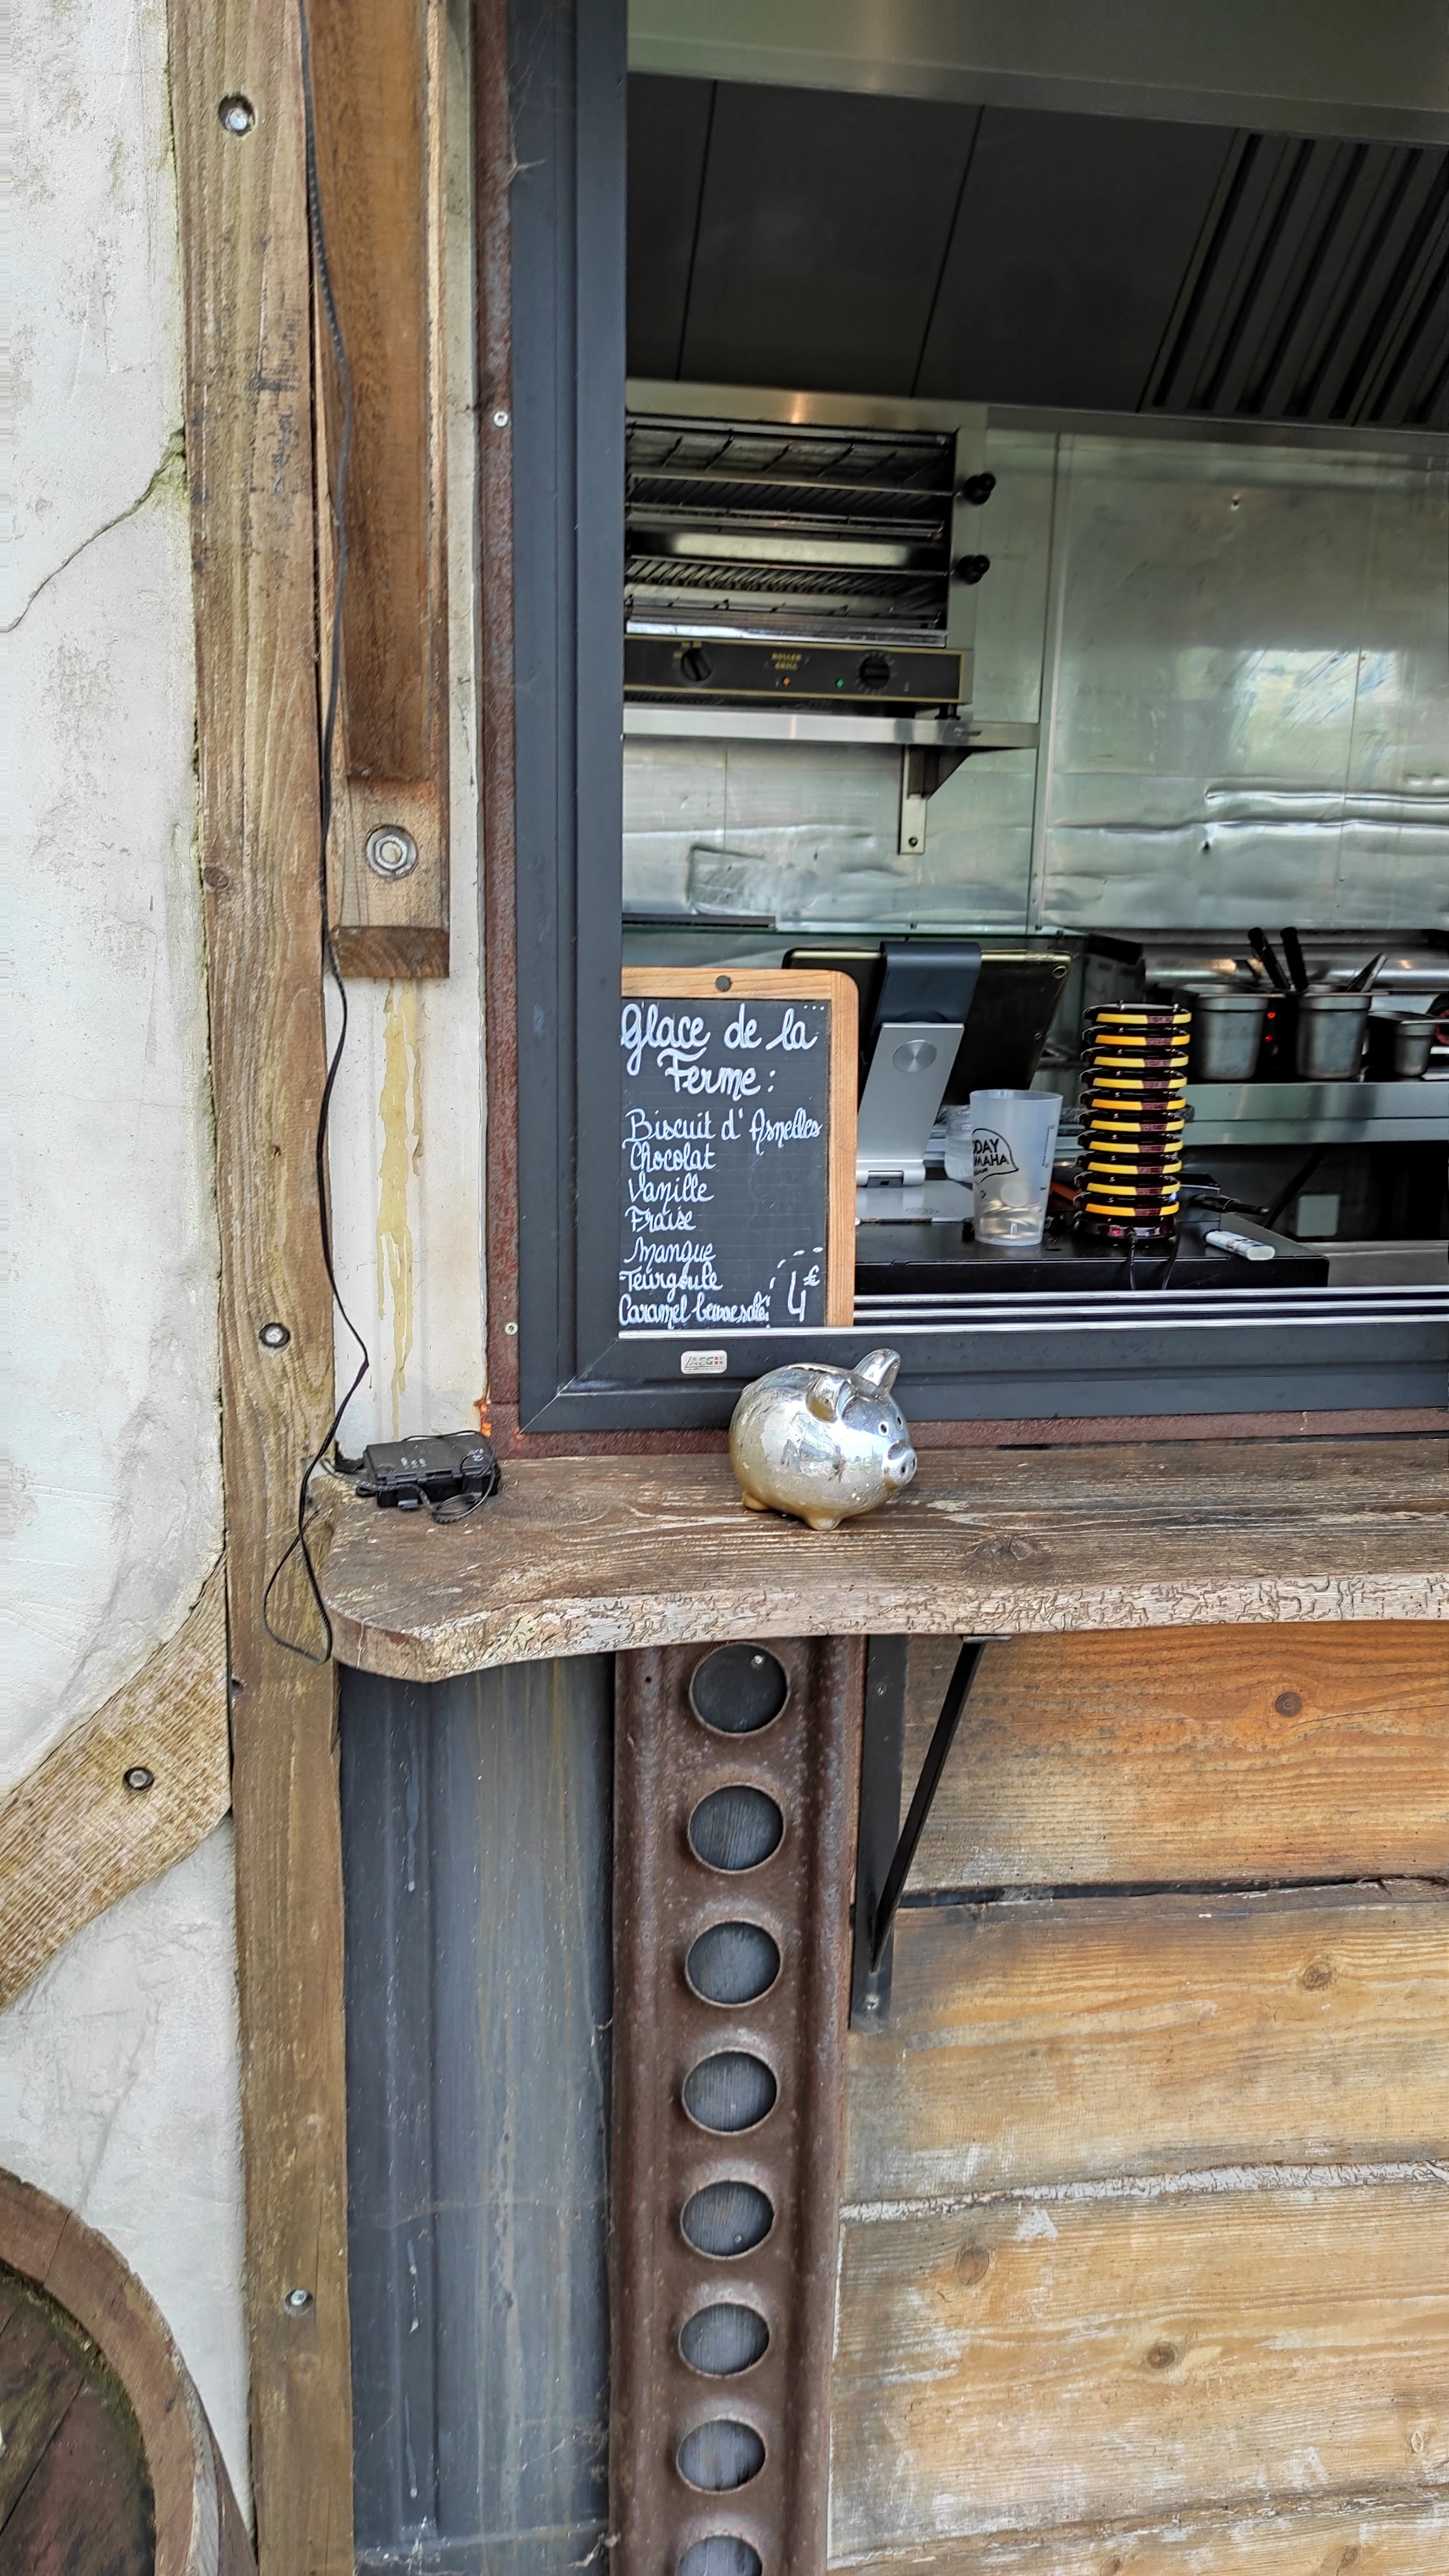 ROLLER
GRILL
Glace de la
Ferme :
Biscuit d'Asnelles
Chocolat
Vanille
Fraise
Mangue
Teurgoule
Caramel beurre salé
4€